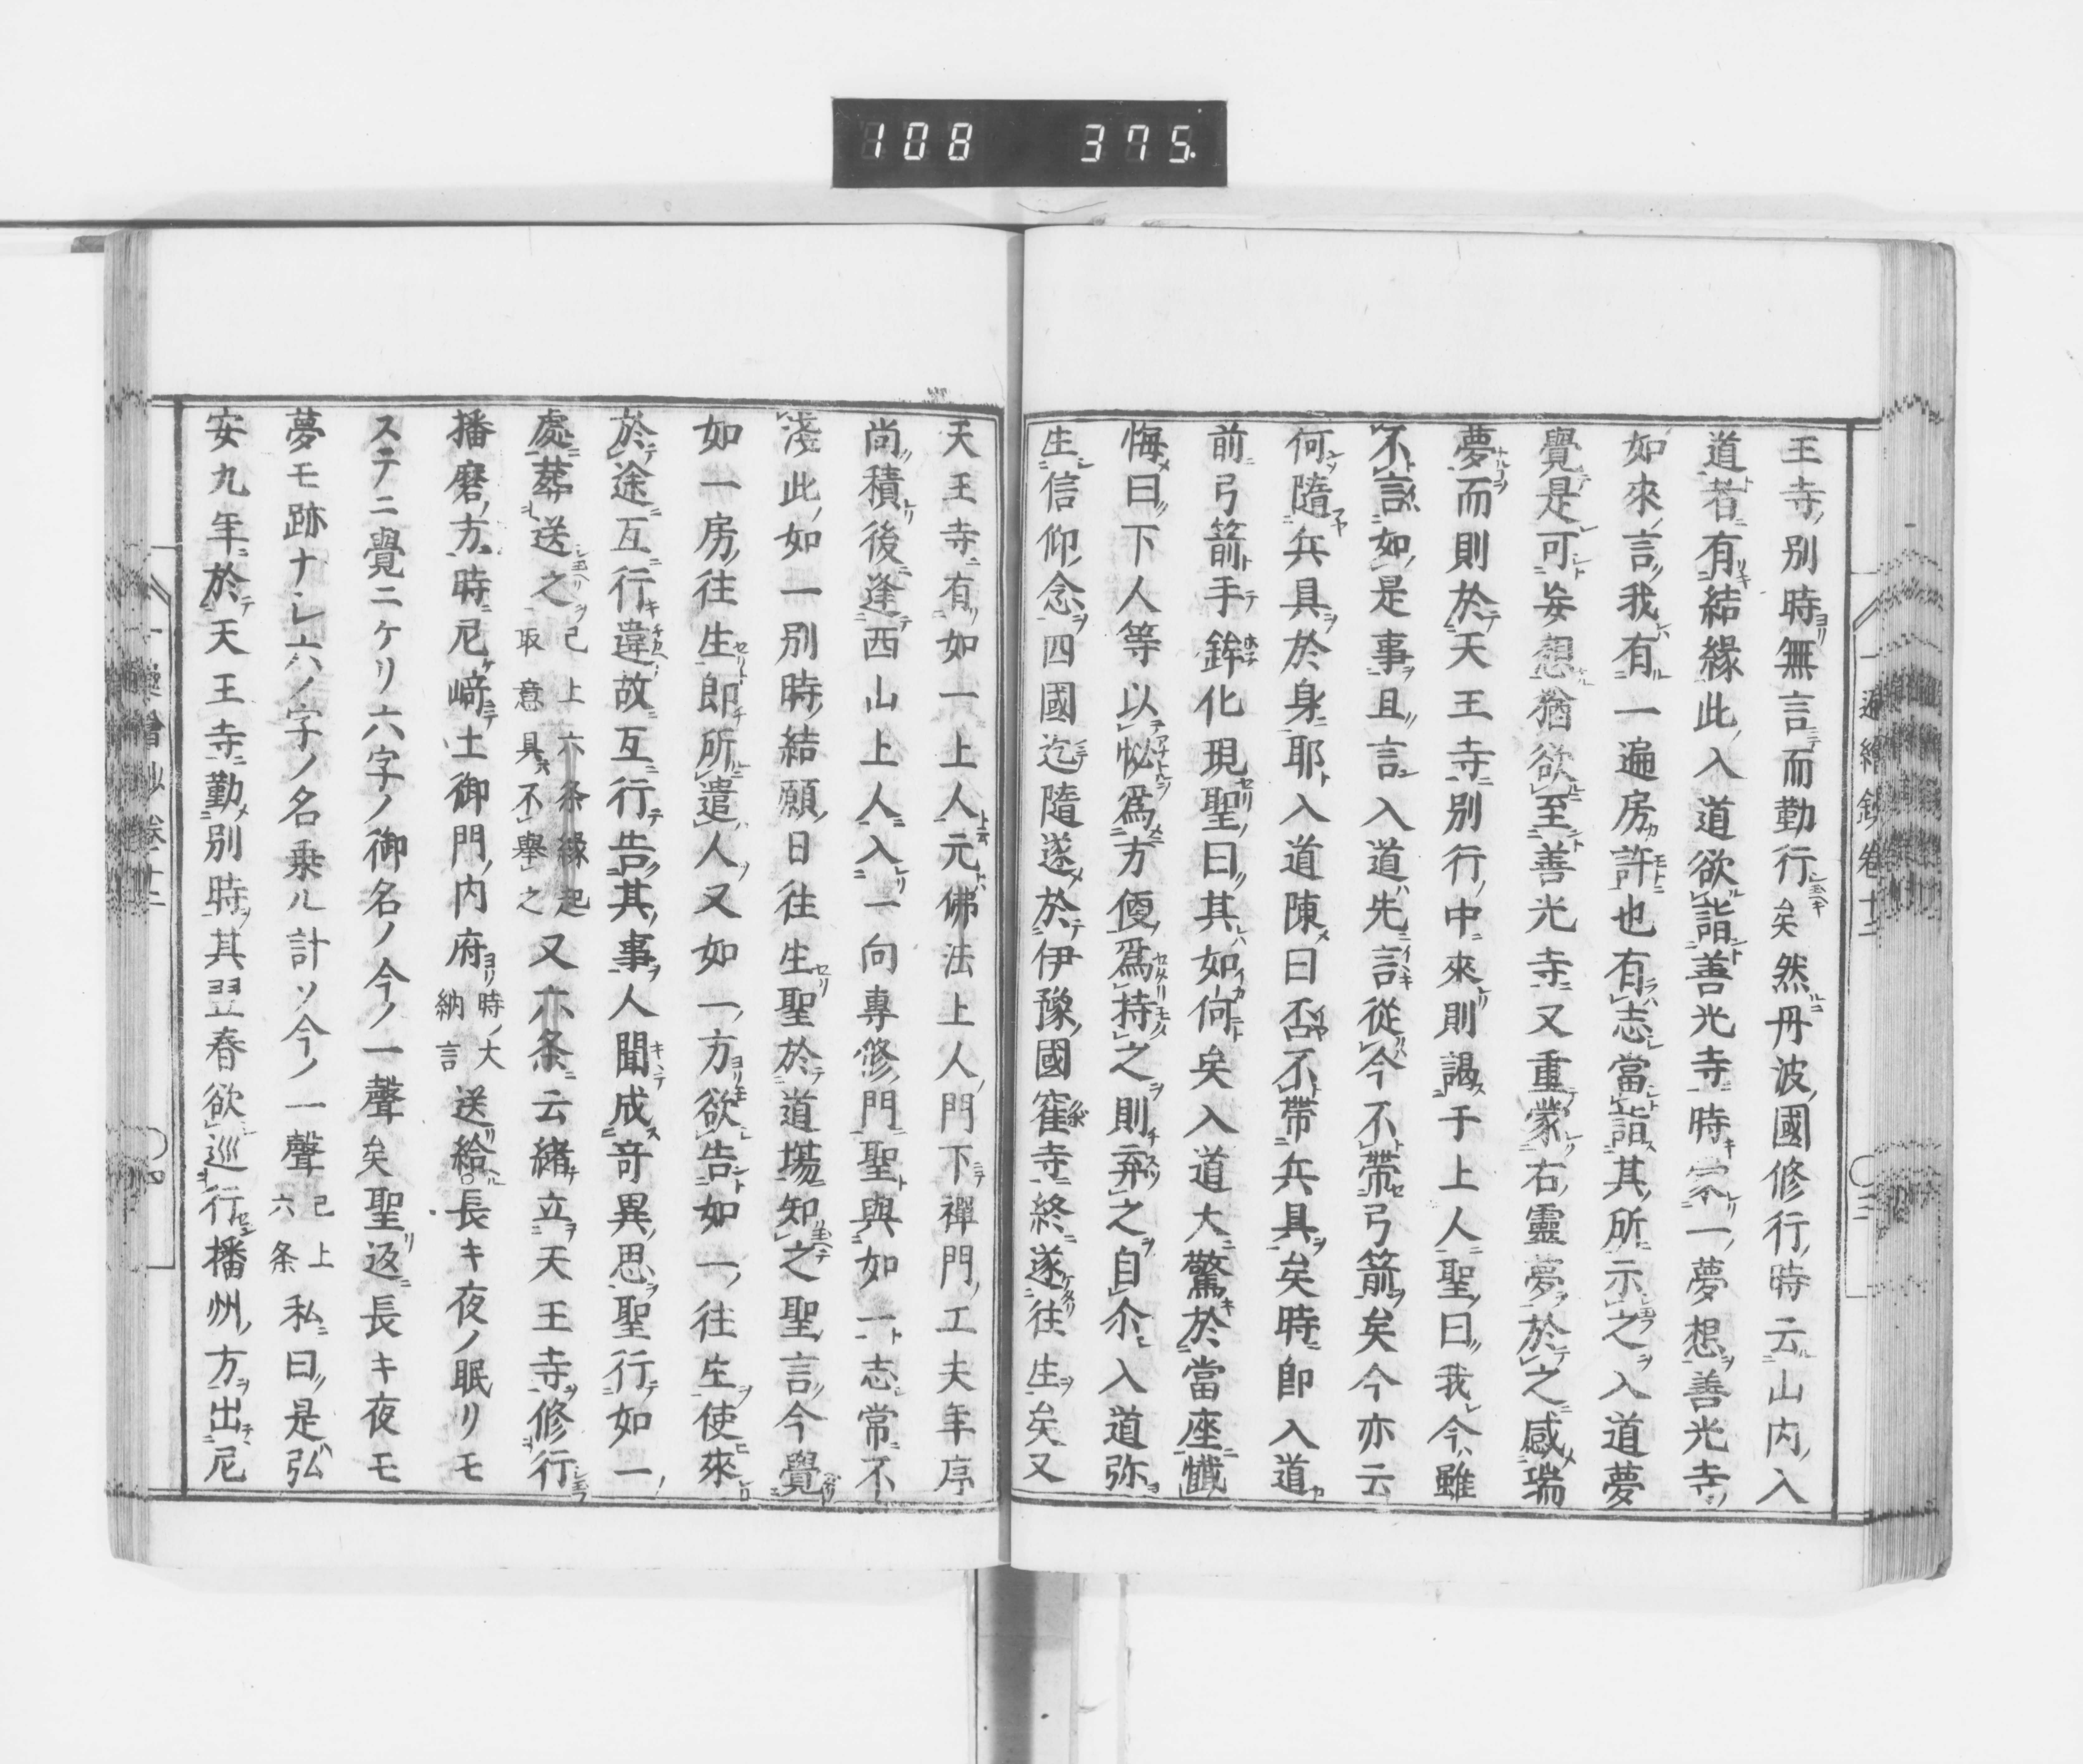 108 375.
王寺別時無言而勤行矣然丹波國修行時云山内入
道者有結緣此入道欲詣善光寺時蒙一夢想善光寺
如來言我有一遍房許也有志當詣其所示之入道夢
覺是可妄想猶欲至善光寺又重蒙右靈夢於之感瑞
夢而則於天王寺別行中來則謁于上人聖曰我今雖
不言如是事且言入道先言從今不帶弓箭矣今亦云
何隨兵具於身耶入道陳曰否不帶兵具矣時即入道
前弓箭手鉾化現聖曰其如何矣入道大驚於當座懺
悔曰下人等以妼爲方便爲持之則弃之自尒入道弥
生信仰念四國迄隨遂於伊豫國窪寺終遂往生矣又
一遍繪鈔卷十二
天王寺有如一上人元佛法上人門下禪門工夫年序
尚積後逢西山上人入一向專修門聖與如一志常不
淺此如一別時結願日往生聖於道場知之聖言今覺
如一房往生即所遣人又如一方欲告如一往生使來
於途互行違故互行告其事人聞成竒異思聖行如一
處葬送之已上六条緣起取意具不擧之又六条云緒立天王寺修行
播磨方時尼﨑土御門内府時大納言送給長キ夜ノ眠リモ
ステニ覺ニケリ六字ノ御名ノ今ノ一聲矣聖返長キ夜モ
夢モ跡ナシ六ノ字ノ名乗ル計ソ今ノ一聲已上六条私曰是弘
安九年於天王寺勤別時其翌春欲巡行播州方出尼